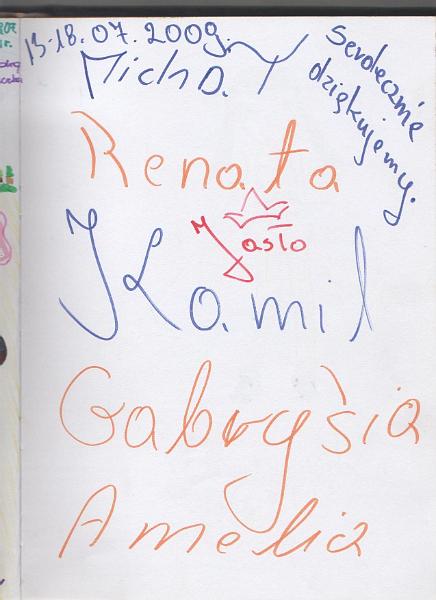 13-18.07.2009r.
Michał
Serdecznie
dziękujemy.
Renata
Jasło
Kamil
Gabrysia
Amelia